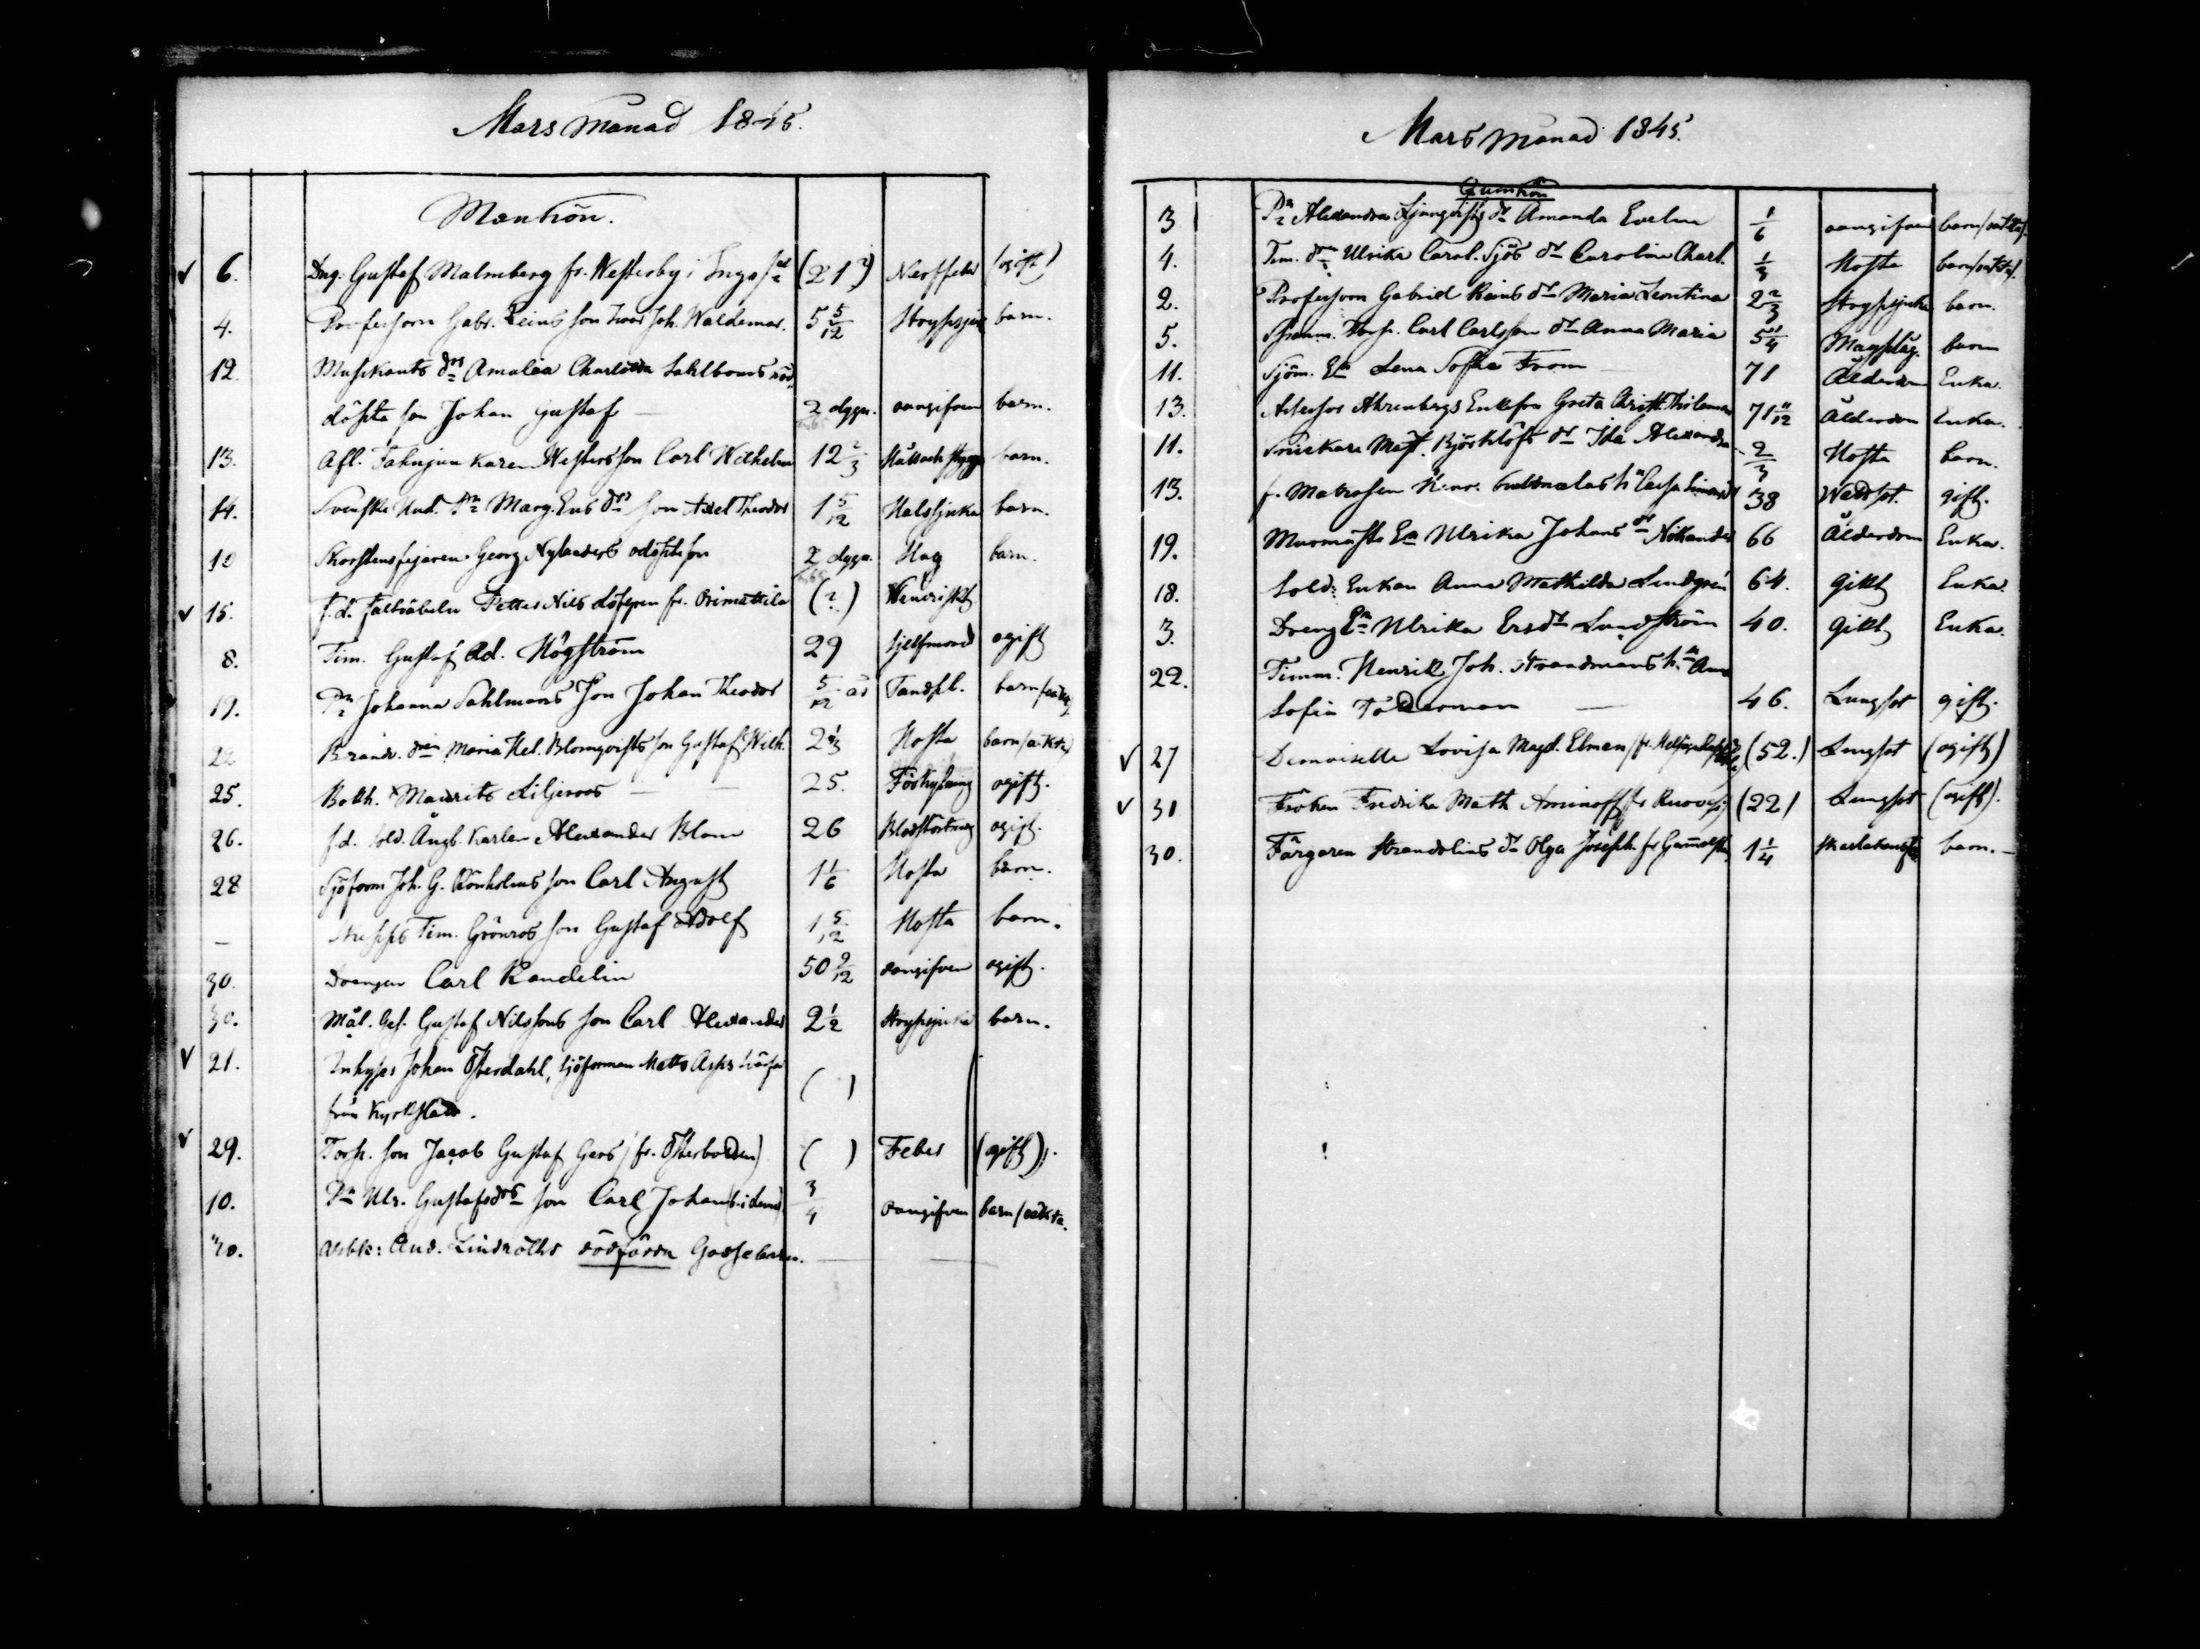 Mars månad 1845.
Mankön.
6. Dng. Gustaf Malmberg fr. Westerby i Ingo (21 ?) Nerffeber (ogift)
4. Professorn Gabr. Reins son Joh. Waldemar. 5 5/12 Strypsjuk barn.
12. Musikants Amalia Charlotta Sahlboms
döpta son Johan Gustaf 2 dygn. oangifven barn.
13. Afl. Fanjunkaren Westers son Carl Wilhelm 12 2/3 barn.
14. Marg. son Axel Theodor 1 5/12 Halssjuka barn.
10 Skorstensfejaren Georg Nylanders odöpte son 2 dygn. Slag barn.
15. f.d. Petter Nils Löfgren fr. Orimattila (?)
8. Tim. Gustaf Ad. Högström 29 sjelfmord ogift
19. Johanna Sahlmans son Johan Theodor 5/12 år Tandspr. barn
22 Maria Hel. Blomqvists son Gustaf Wilh. Hosta barn
25. Bokh. Maurits Liljeroos 25. Förkylning ogift.
26. f.d. sold. Ångb. Karlen Alexander Blom 26 Blodstörtning ogift.
28 Sjöform Joh. G. Rönholms son Carl August 1 1/6 Hosta barn.
– Skepps Tim. Grönros son Gustaf Adolf 1 5/12 Hosta barn.
30. Drengen Carl Randelin 50 9/12 oangifven ogift.
30. Mål. Ges. Gustaf Nilssons son Carl Alexander 2 1/2 Strypsjuka barn.
21. Inhyses Johan Österdahl, sjöforman Matts Asps
från Kyrkslätt. ( )
29. Torp. son Jacob Gustaf Gers (fr. Österbotten) ( ) Feber (ogift).
10. Ulr. Gustafsdrs son Carl Johan 3/4 oangifven barn/oäkta.
30. Arbk: And. Lindroths dödfödda Gossebarn.
Mars månad 1845.
Qvinkön
3 Alexandra Ljungqvists dr Amanda Evelina 1/6 oangifven barn
4. Tim. Ulrika Carol. Sjös dr Carolina Charl. 1/3 Hosta barn
2. Professorn Gabriel Reins dr Maria Leontina 2 2/3 Strypsjuka barn.
5. Carl Carlsson dr Anna Maria 5 1/4 barn
11. Sjöm. En Lena Sofia From 71 Ålderdom Enka.
13. Assessor Ahrenbergs Enkefru Greta Christ. 71 11/12 Ålderdom Enka.
11. Björklöfs dr Ida Alexandra 2/3 Hosta barn.
13. f. Matrosen 38 gift.
19. Murmäst. En Ulrika Johans dr Nikander 66 Ålderdom Enka.
18. Sold: Enkan Anna Mathilda Lindgren 64. Gikt Enka.
3. Dreng En Ulrika Ersdr Lundström 40. Gikt Enka.
22. Timm. Henrik Joh. Strandmans h. Anna
Sofia 46. Lungsot gift.
27 Demoiselle Lovisa Magd. Elmen (52.) Lungsot (ogift)
31 Fröken Fredrika Math Aminoff (22) Lungsot (ogift).
30. Färgaren Strandelius dr Olga Joseph. 1 1/4 barn.